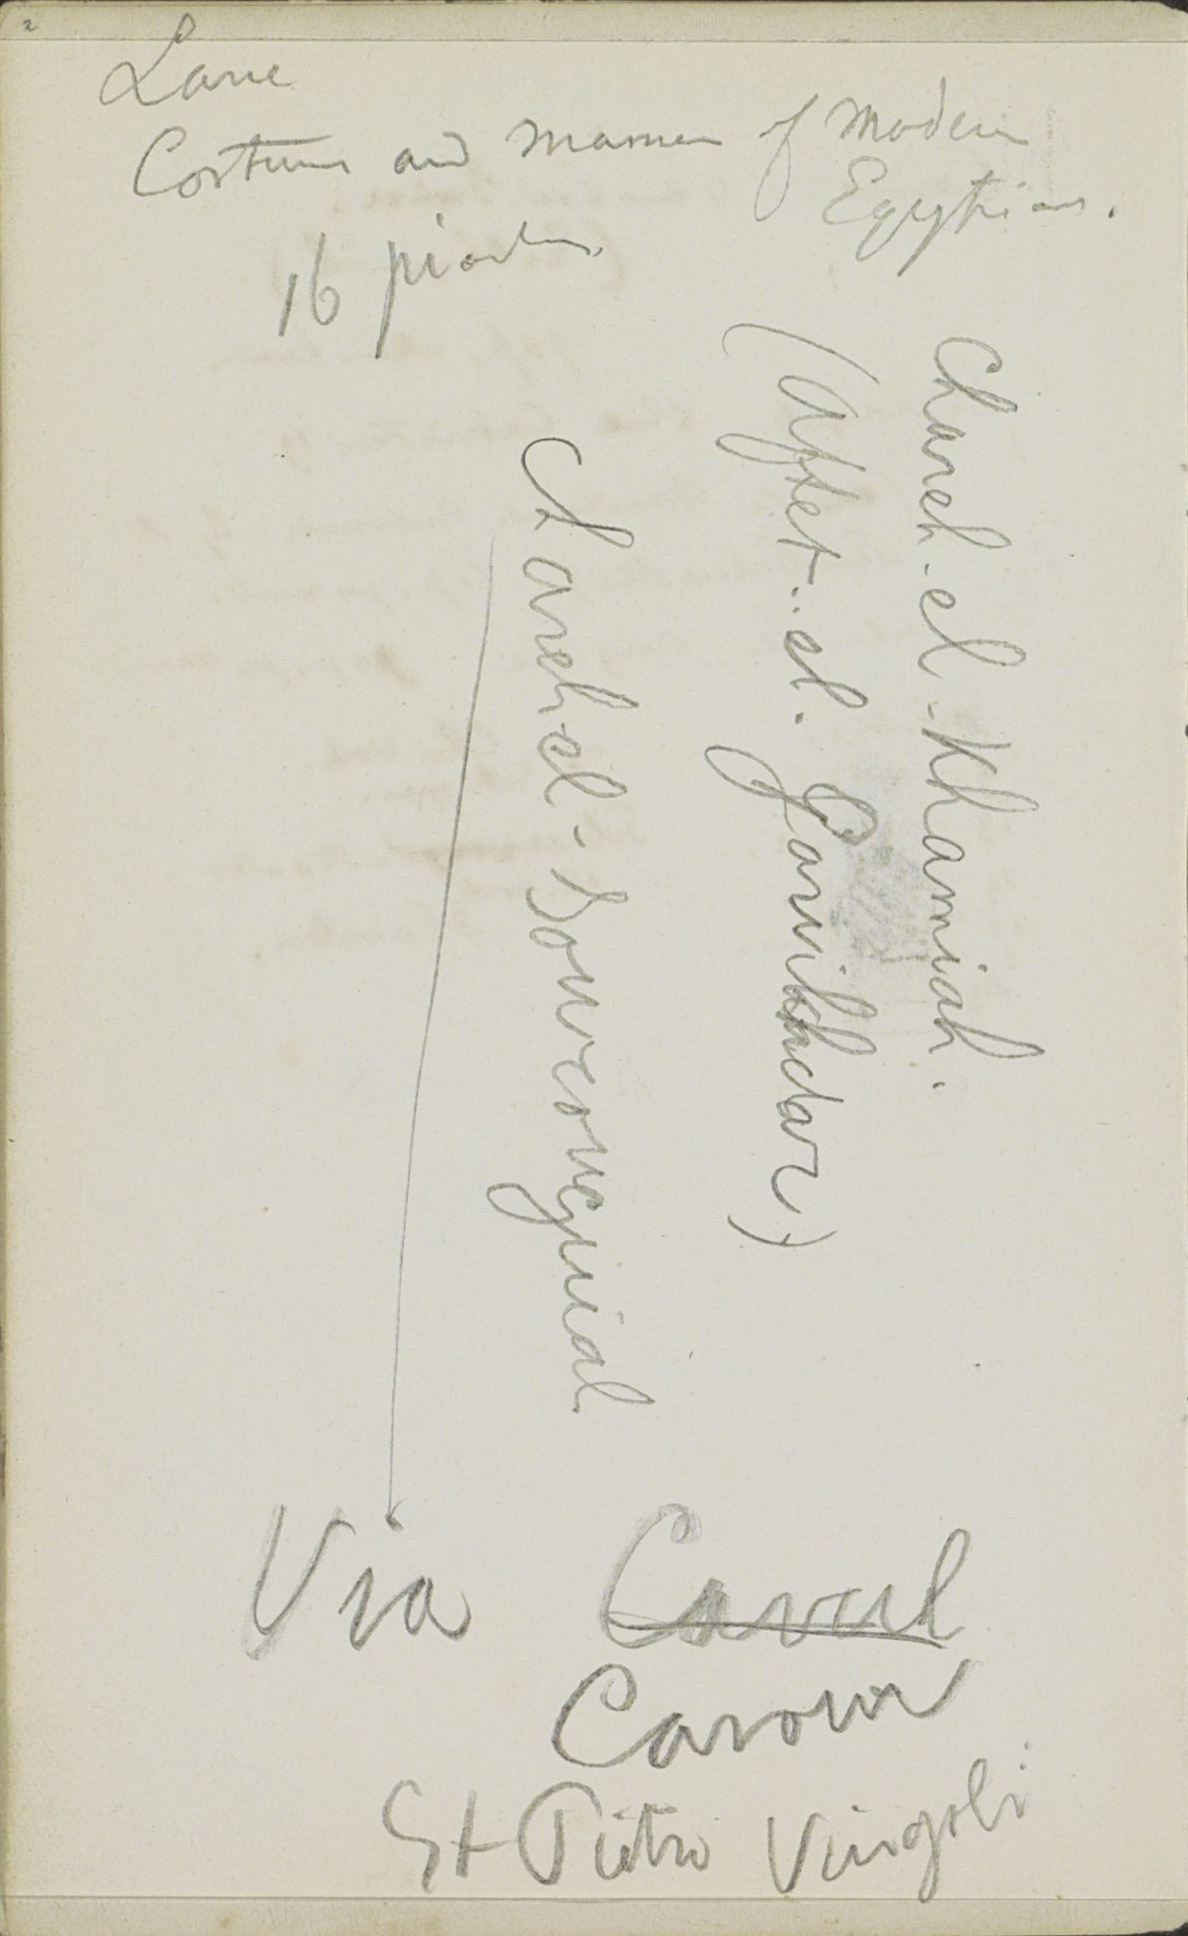 2
Lane
Costums and manners of modern
Egyptians.
16 piasters
Chareh-el-Khamiah.
(Aftet..el.
Chareh-el-Sourouguial
Via Cavul
Cavour
St Pietro Vingoli